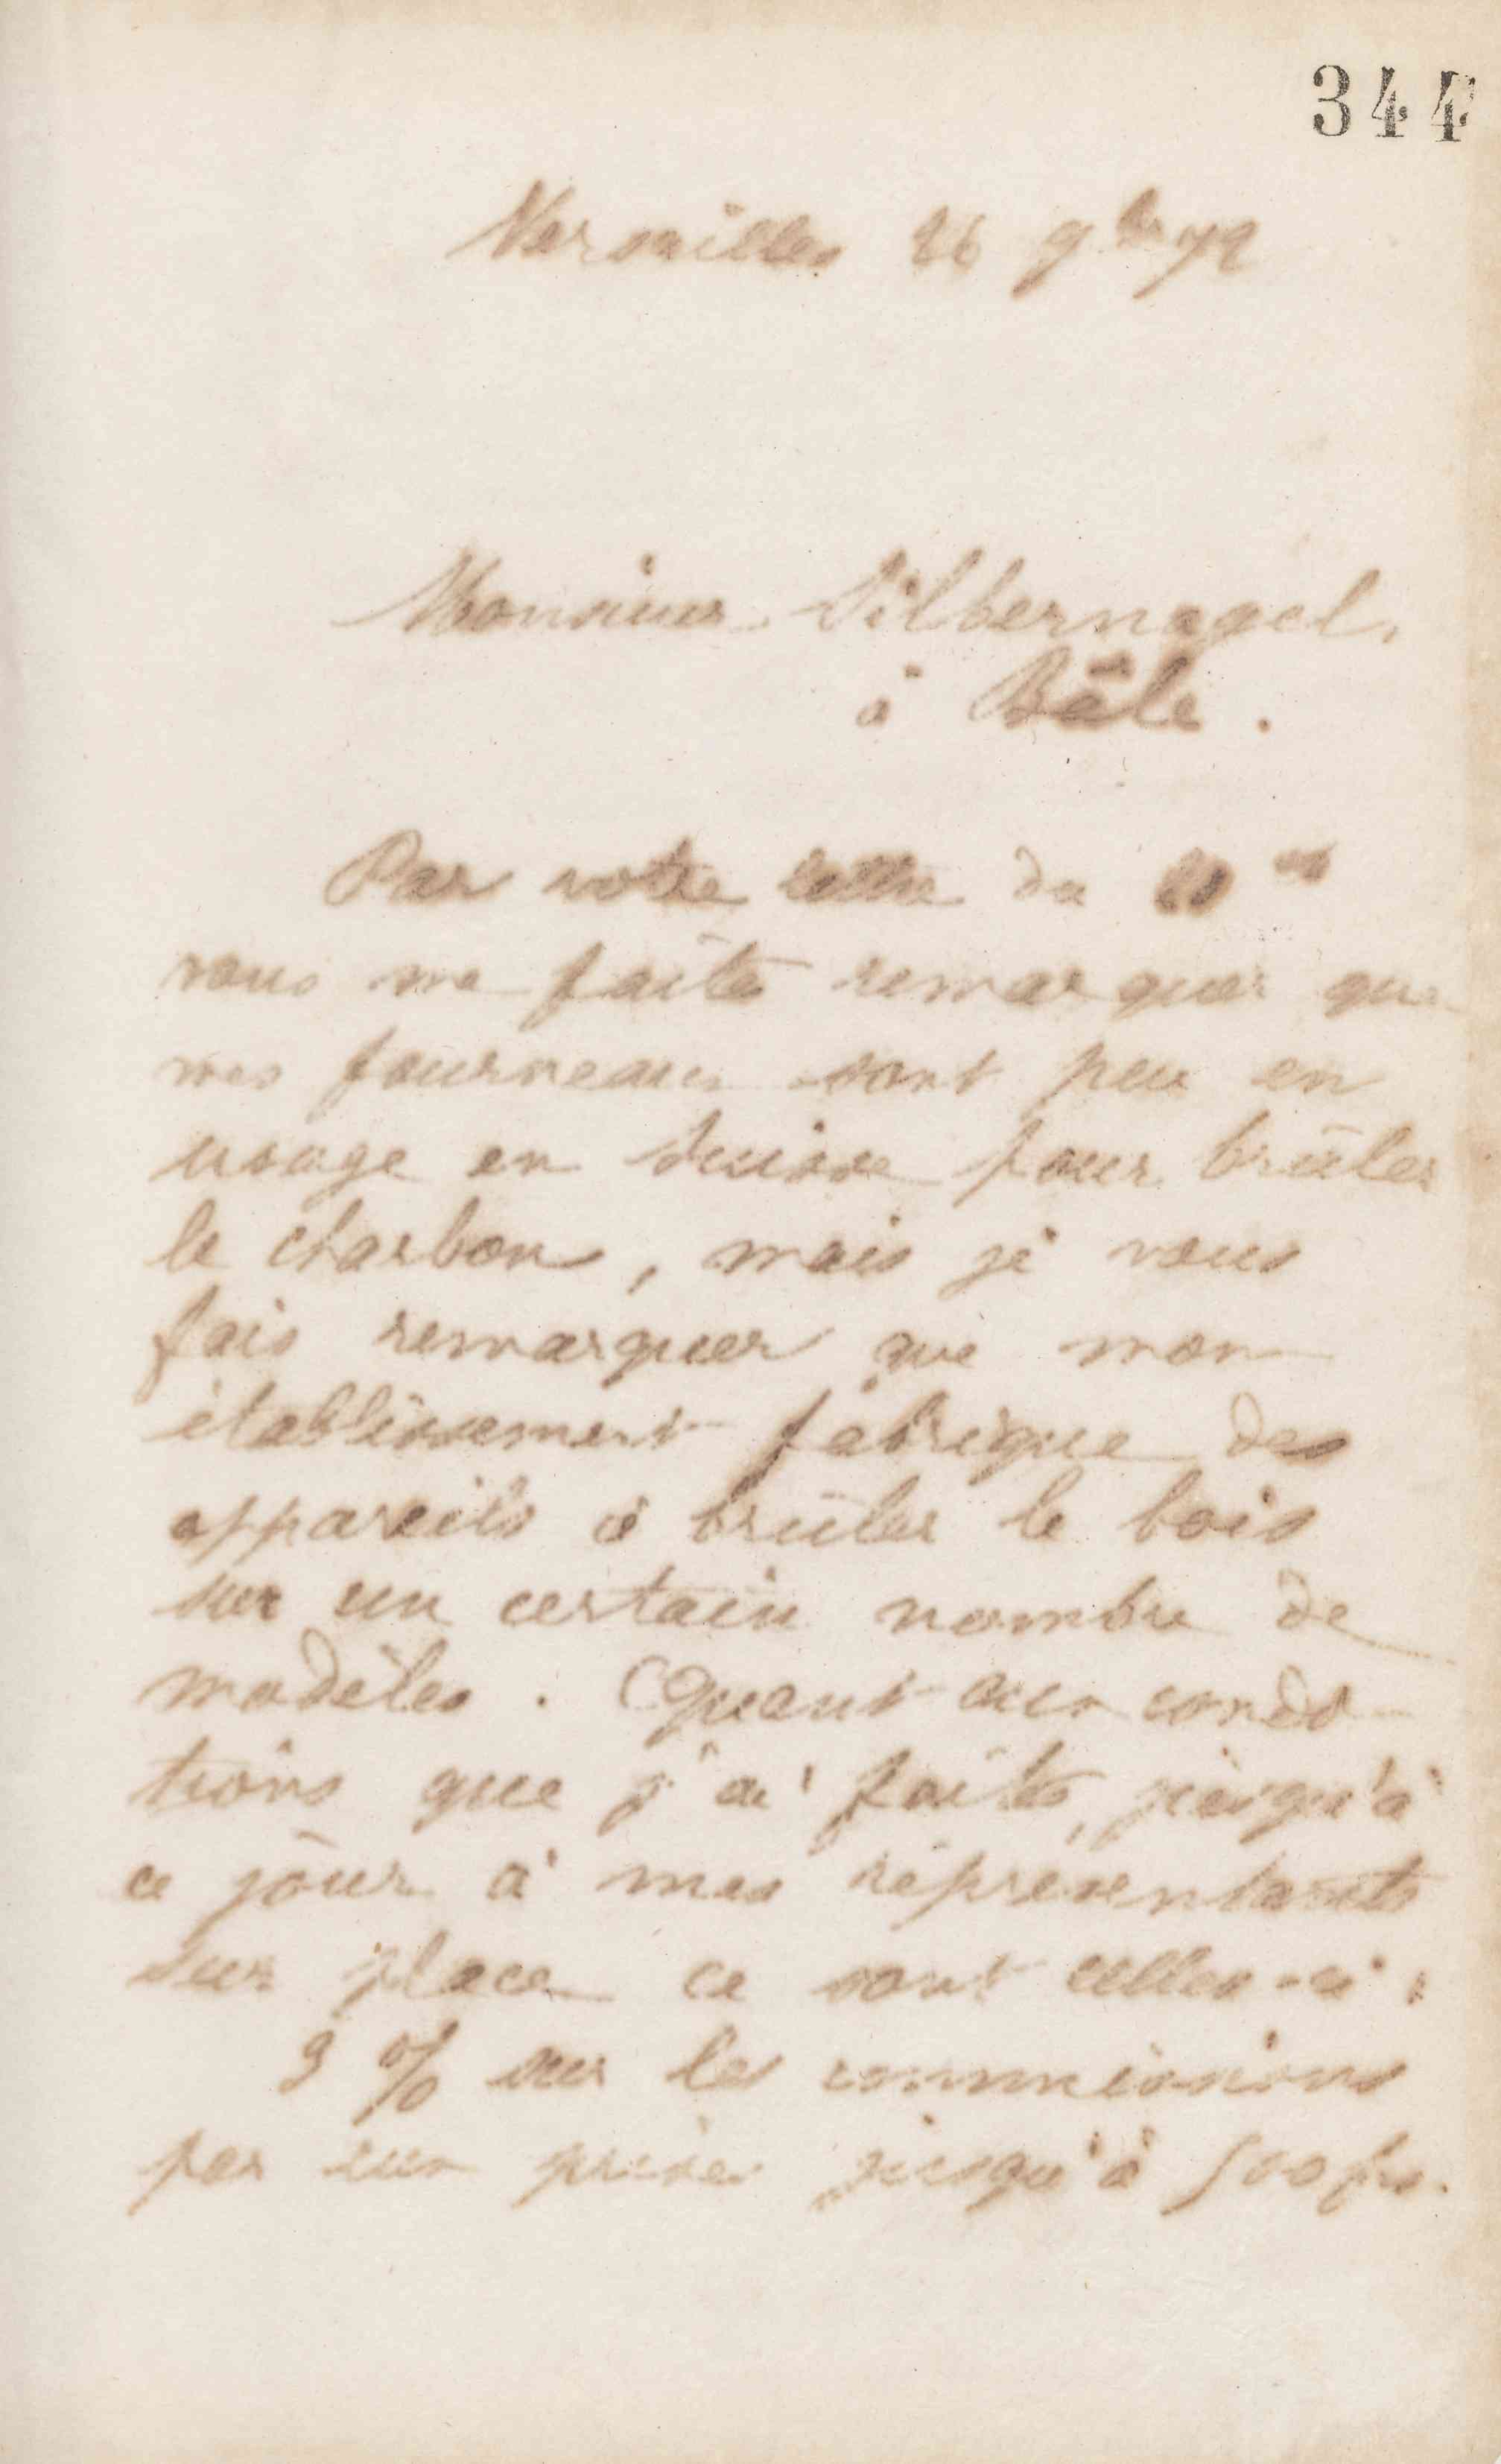 344
Versailles 26 9bre 72
Monsieur Silbernagel,
à Bâle.
Par votre lettre du
vous me faites remarquer que
mes fourneaux sont peu en
usage en Suisse pour brûler
le charbon, mais je vous
fais remarquer que mon
établissement fabrique des
appareils à brûler le bois
sur un certain nombre de
modèles. Quant aux condi-
tions que j'ai faites, jusqu'à
ce jour à mes représentants
sur place ce sont celles-ci :
3 % sur les commissions
par eux prises jusqu'à 500 frs.